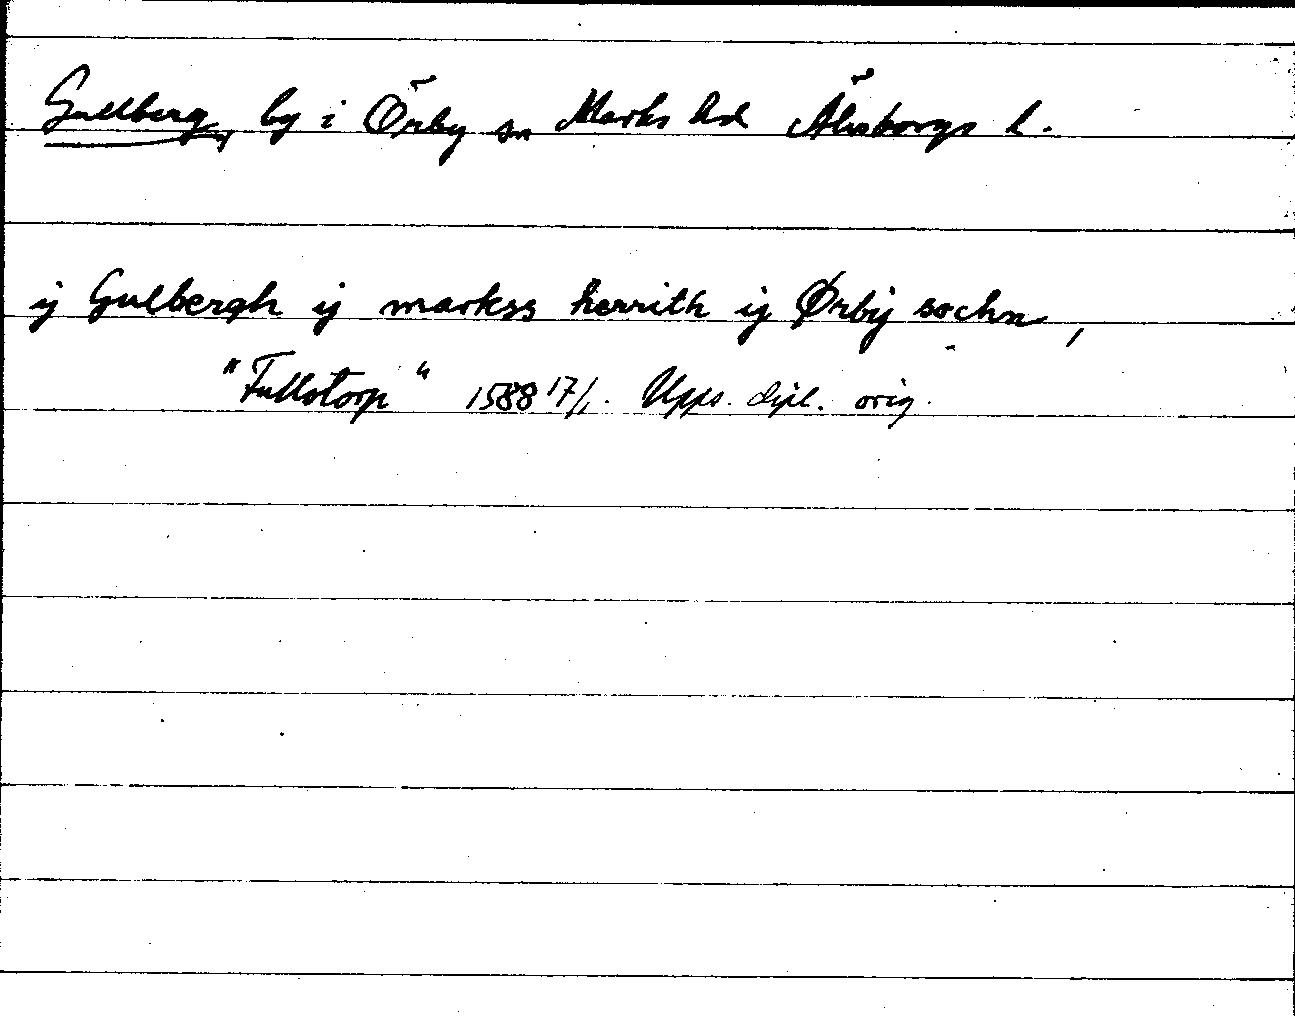 Gullberg, by i Örby sn Marks hd Älvsborgs l.
ij Gulbergh ij markss herrith ij Ørbij sochn,
"Fullstorp" 1588 17/1. Upps. dipl. orig.